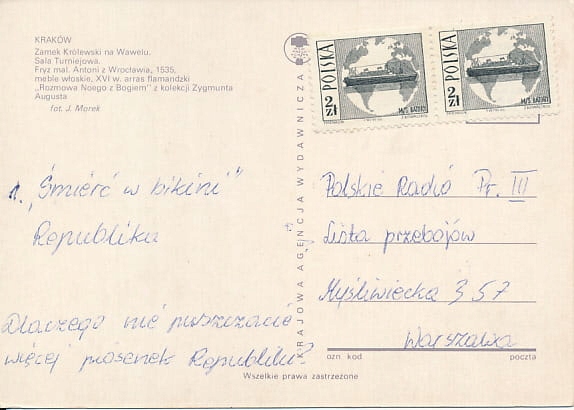 KRAKÓW
Zamek Królewski na Wawelu.
Sala Turniejowa.
Fryz mal. Antoni z Wrocławia, 1535,
meble włoskie, XVI w. arras flamandzki
„Rozmowa Noego z Bogiem" z kolekcji Zygmunta
Augusta
fot. J. Morek
1. „Śmierć w bikini"
Republika
Dlaczego nie puszczacie
więcej piosenek Republiki?
KRAJOWA AGENCJA WYDAWNICZA
POLSKA
2 ZŁ
M/S BATORY
POLSKA
2 ZŁ
M/S BATORY
Polskie Radio Pr. III
Lista przebojów
Myśliwiecka 3 5 7
Warszawa
ozn kod
poczta
Wszelkie prawa zastrzeżone